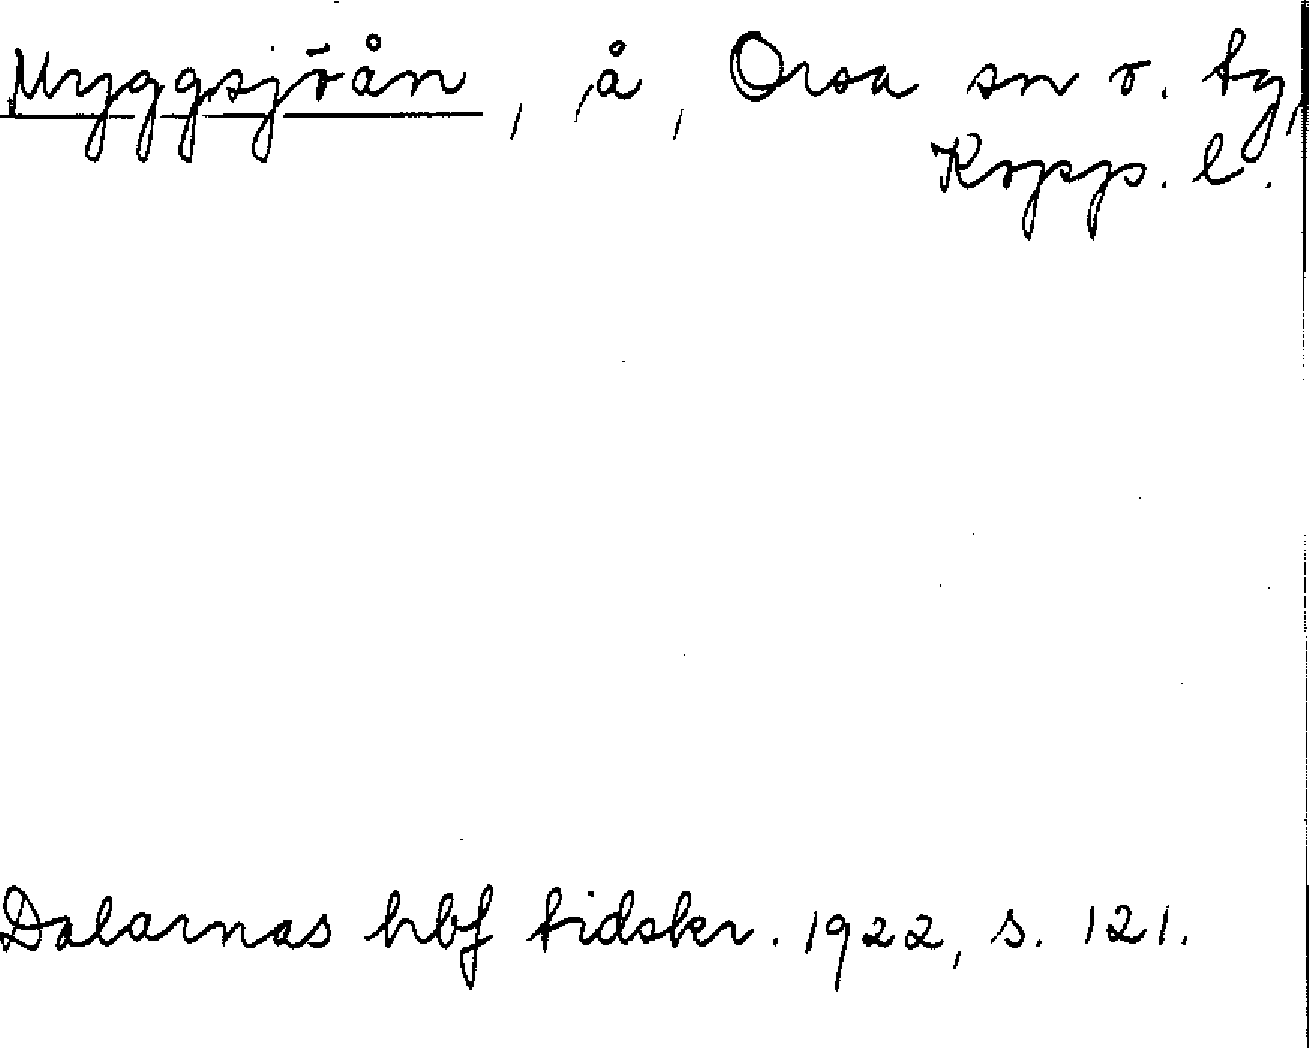 Myggsjöån, å, Orsa sn o. tg,
Kopp. l.
Dalarnas hbf tidskr. 1922, s. 121.